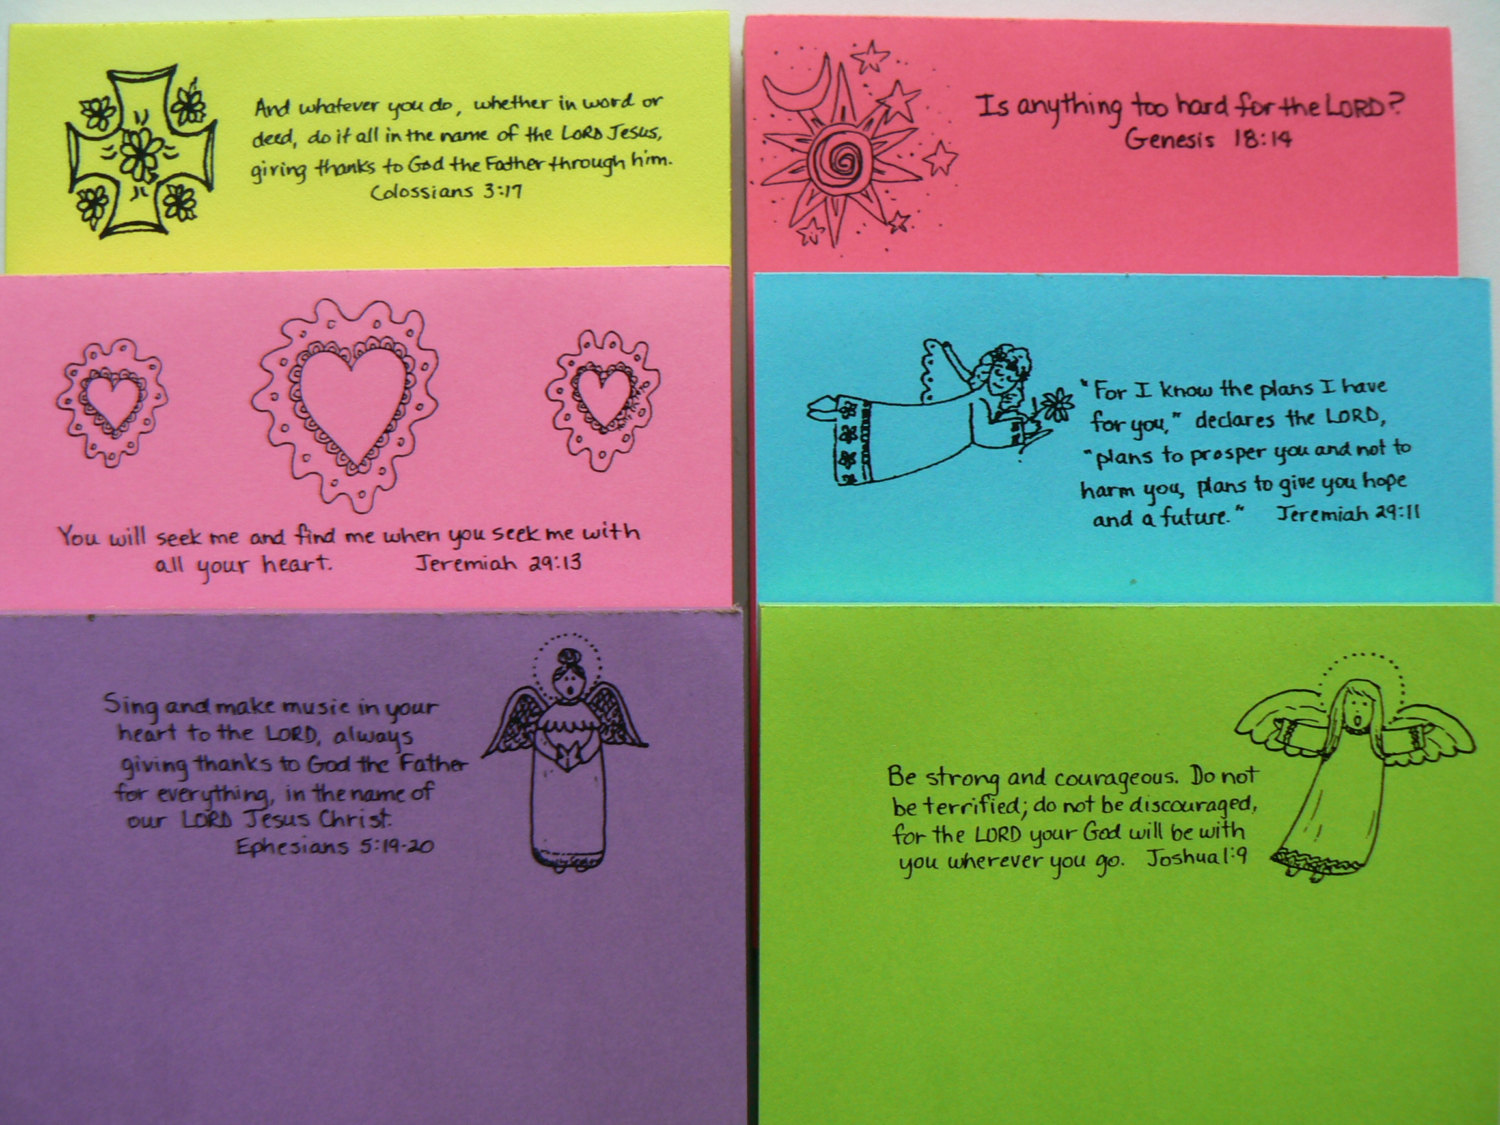 And whatever you do, whether in word or
deed, do it all in the name of the LORD Jesus,
giving thanks to God the Father through him.
Colossians 3:17
Is anything too hard for the LORD?
Genesis 18:14
You will seek me and find me when you seek me with
all your heart. Jeremiah 29:13
"For I know the plans I have
for you," declares the LORD,
"plans to prosper you and not to
harm you, plans to give you hope
and a future." Jeremiah 29:11
Sing and make music in your
heart to the LORD, always
giving thanks to God the Father
for everything, in the name of
our LORD Jesus Christ.
Ephesians 5:19-20
Be strong and courageous. Do not
be terrified; do not be discouraged,
for the LORD your God will be with
you wherever you go. Joshua 1:9